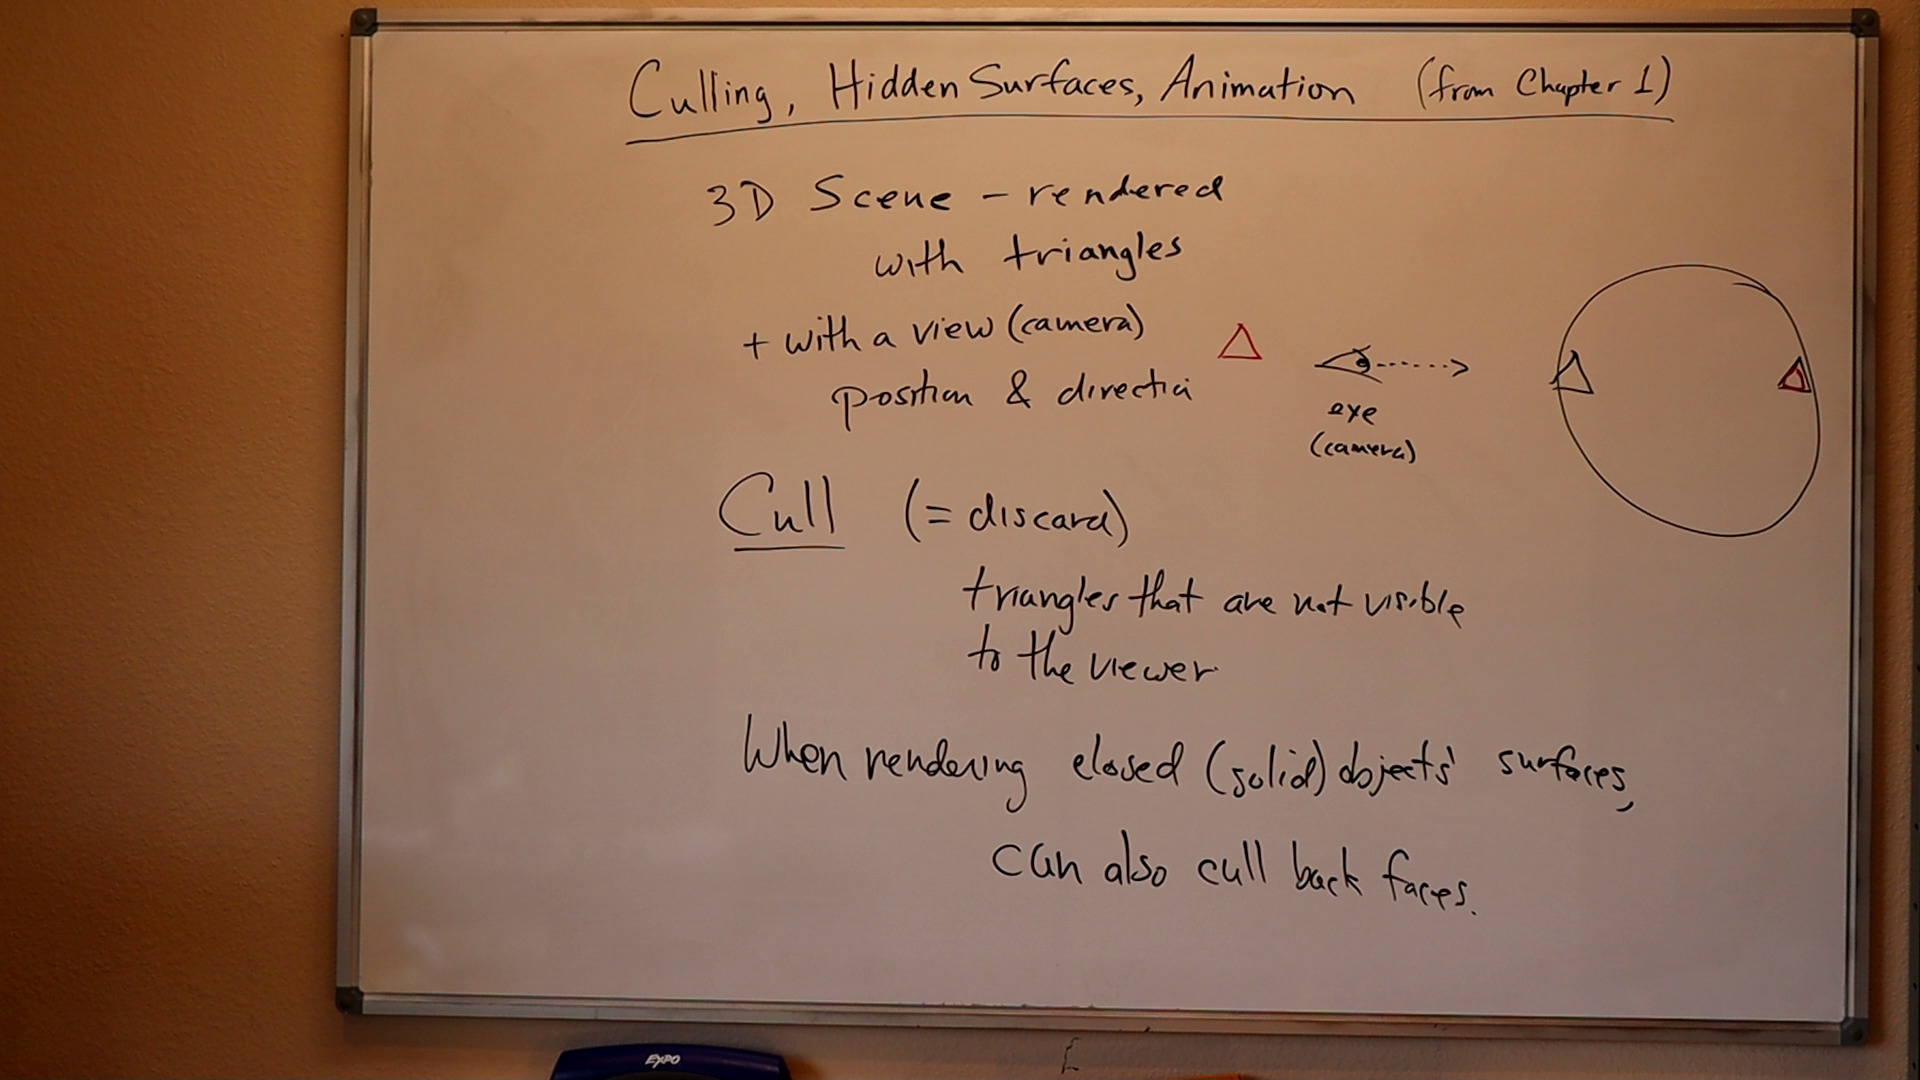 Culling, Hidden Surfaces, Animation (from Chapter 1)
3D Scene – rendered
with triangles
+ with a view (camera)
position & directi
eye
(camera)
Cull (= discard)
triangles that are not visible
to the viewer
When rendering closed (solid) objects' surfaces,
can also cull back faces.
EXPO